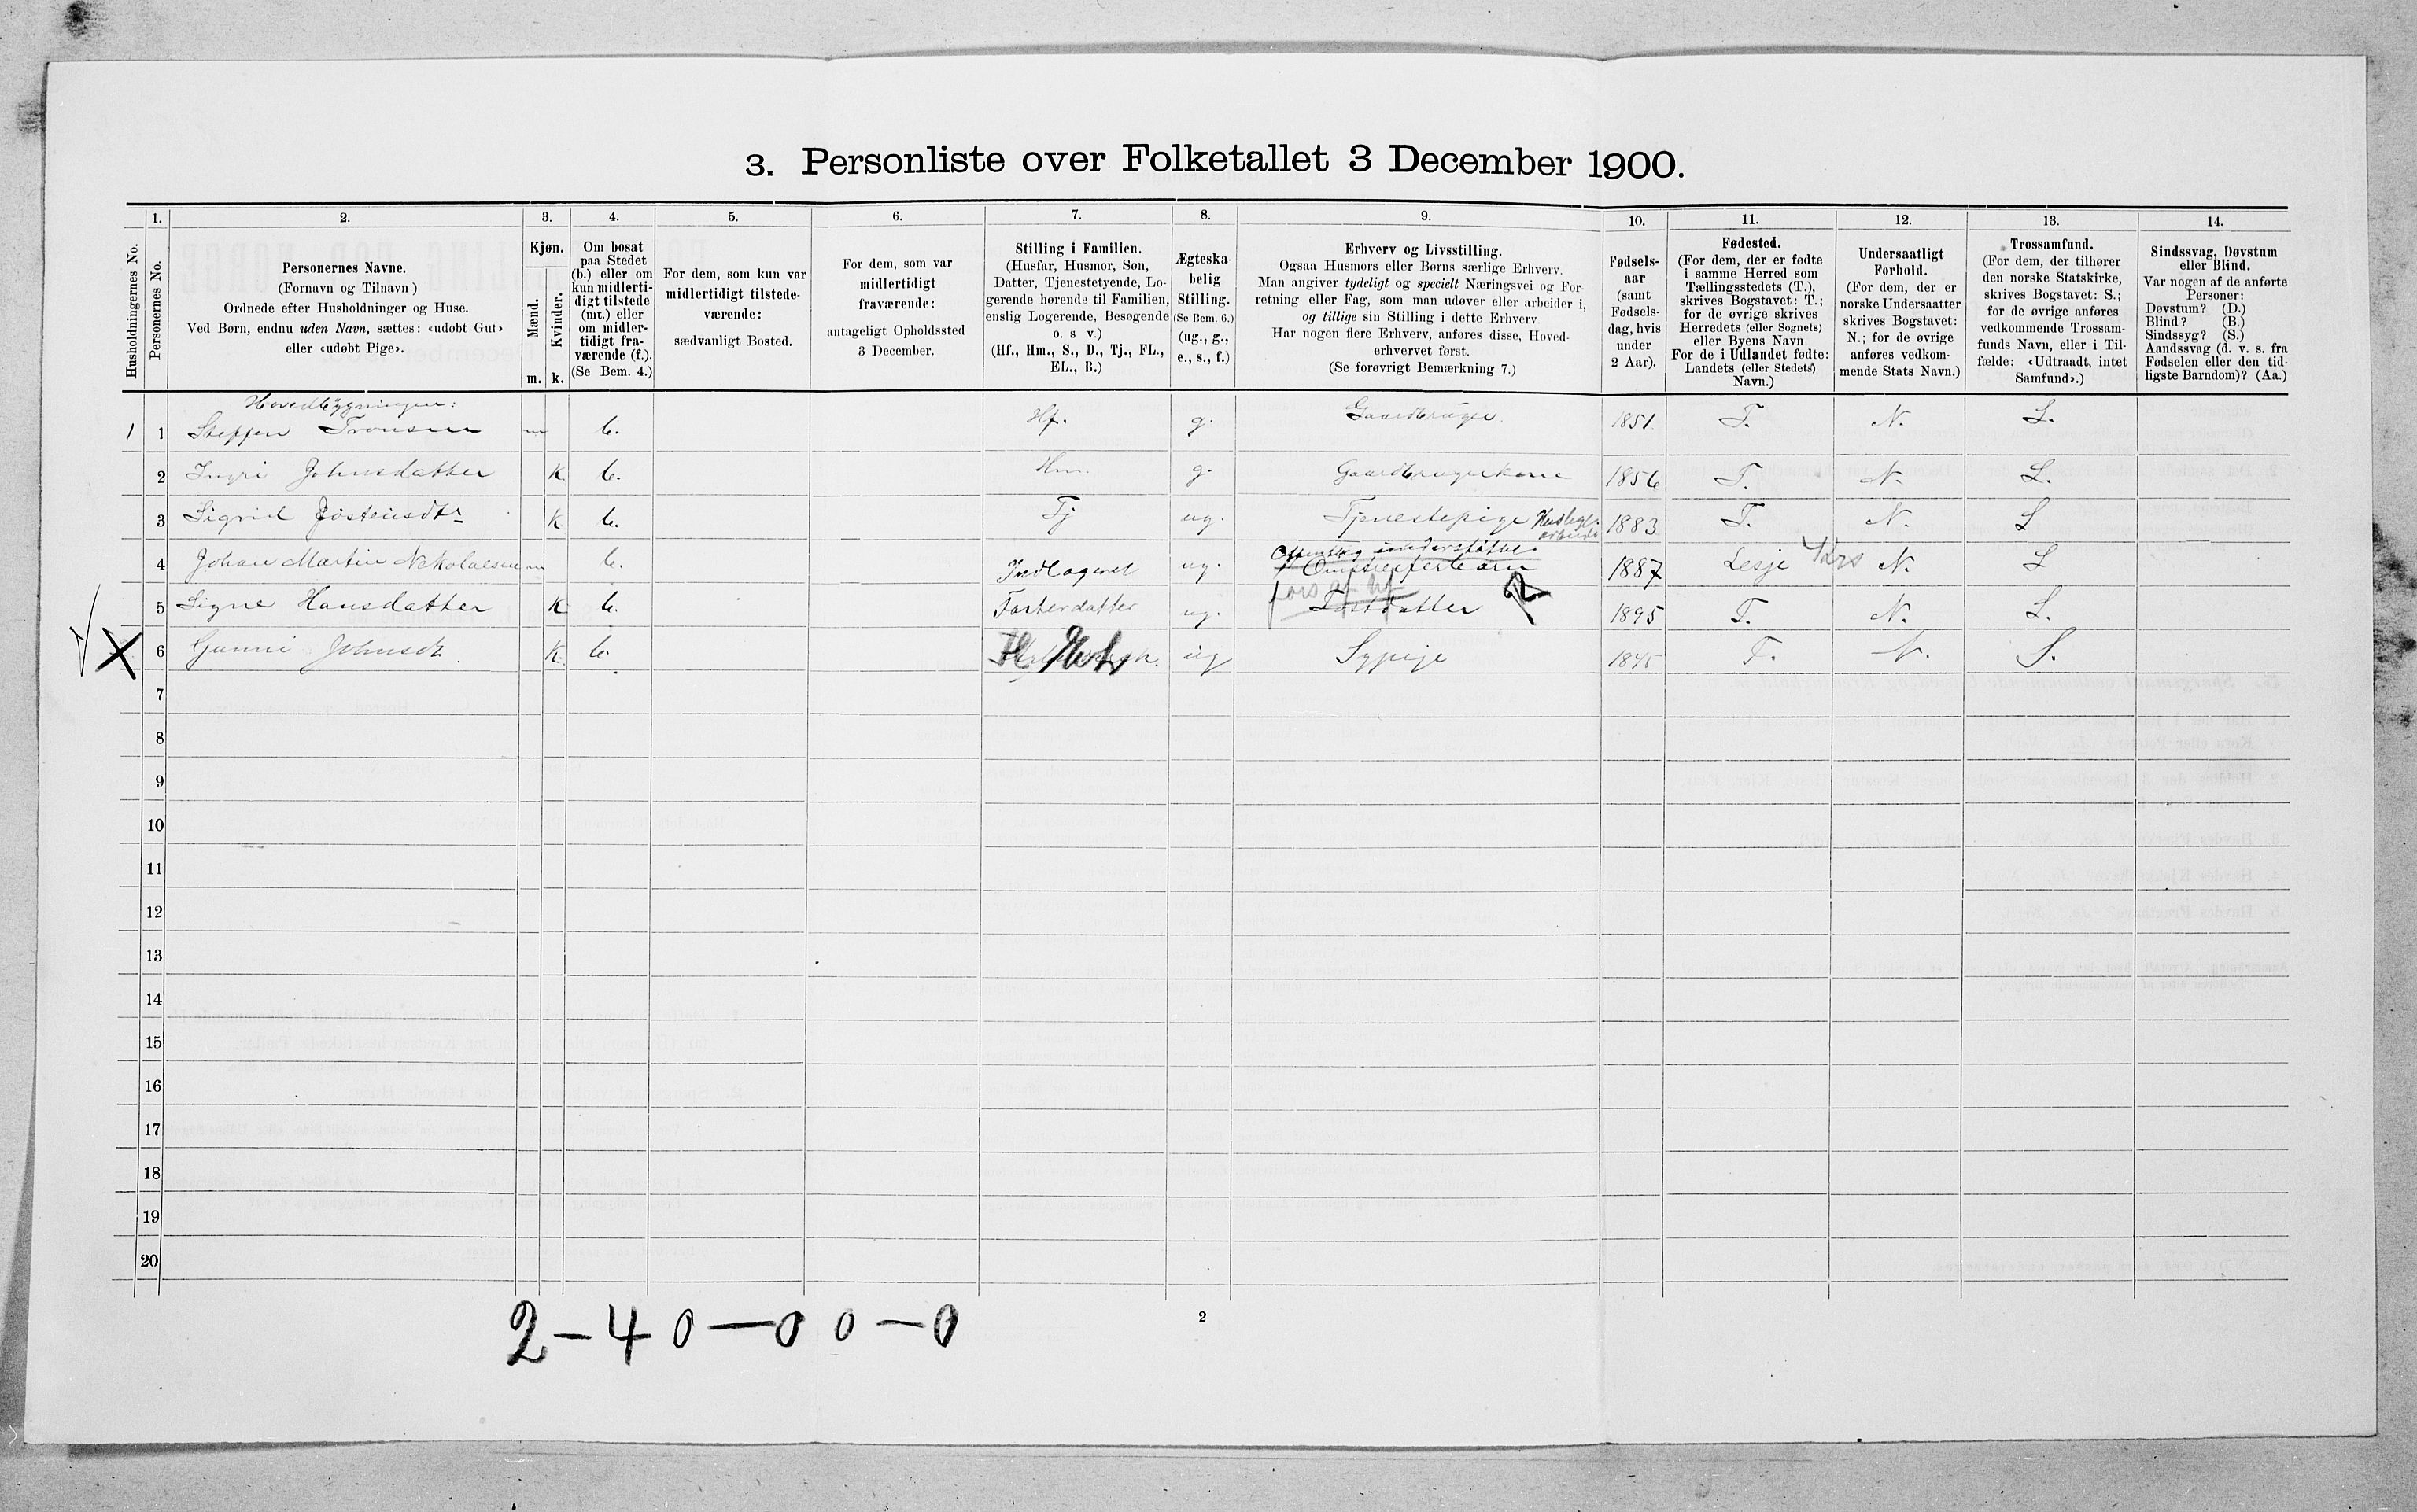 3. Personliste over Folketallet 3 December 1900.
1. 2. 3. 4. 5. 6. 7. 8. 9. 10. 11. 12. 13. 14.
Husholdningernes No.
Personernes No.
Personernes Navne.
(Fornavn og Tilnavn)
Ordnede efter Husholdninger og Huse.
Ved Børn, endnu uden Navn, sættes: «udøbt Gut»
eller «udøbt Pige».
Kjøn.
Mænd.
Kvinder.
m. k.
Om bosat
paa Stedet
(b.) eller om
kun midlerti-
digt tilstede
(mt.) eller
om midler-
tidigt fra-
værende (f.).
(Se Bem. 4.)
For dem, som kun var
midlertidigt tilstede-
værende:
sædvanligt Bosted.
For dem, som var
midlertidigt
fraværende:
antageligt Opholdssted
3 December.
Stilling i Familien.
(Husfar, Husmor, Søn,
Datter, Tjenestetyende, Lo-
gerende hørende til Familien,
enslig Logerende, Besøgende
o. s v.)
(Hf., Hm., S., D., Tj., FL.,
EL., B.)
Ægteska-
belig
Stilling.
(Se Bem. 6.)
(ug., g.,
e., s., f.)
Erhverv og Livsstilling.
Ogsaa Husmors eller Børns særlige Erhverv.
Man angiver tydeligt og specielt Næringsvei og For-
retning eller Fag, som man udøver eller arbeider i,
og tillige sin Stilling i dette Erhverv
Har nogen flere Erhverv, anføres disse, Hoved-
erhvervet først.
(Se forøvrigt Bemærkning 7.)
Fødsels-
aar
(samt
Fødsels-
dag, hvis
under
2 Aar).
Fødested.
(For dem, der er fødte
i samme Herred som
Tællingsstedets (T.),
skrives Bogstavet: T.;
for de øvrige skrives
Herredets (eller Sognets)
eller Byens Navn
For de i Udlandet fødte:
Landets (eller Stedets)
Navn.)
Undersaatligt
Forhold.
(For dem, der er
norske Undersaatter
skrives Bogstavet:
N.; for de øvrige
anføres vedkom-
mende Stats Navn.)
Trossamfund.
(For dem, der tilhører
den norske Statskirke,
skrives Bogstavet: S.;
for de øvrige anføres
vedkommende Trossam-
funds Navn, eller i Til-
fælde: «Udtraadt, intet
Samfund».)
Sindssvag, Døvstum
eller Blind.
Var nogen af de anførte
Personer:
Døvstum? (D.)
Blind? (B.)
Sindssyg? (S.)
Aandssvag (d. v. s. fra
Fødselen eller den tid-
ligste Barndom)? (Aa.)
Hovedbygningen:
1 1 Steffen Tronsen m b. Hf. g. Gaardbruger 1851 T. N. S.
2 Ingri Johnsdatter k. b. Hm. g. Gaardbrugerkone 1856 T. N. S.
3 Sigrid Jøsteinsdtr k b. Tj ug. Tjenestepige Huslegt arbeide 1883 T. N. S
Offentlig understøttet
4 Johan Martin Nekolaesen m b. Indlogeret ug. Omstreiferbarn 1887 Lesje Krs N. S
fors af hf
5 Signe Hansdatter k b. Fosterdatter ug. Fostdatter 1895 T. N. S.
6 Gunni Johnsdt k. b. ug Sypige 1845 T. N. S.
7
8
9
10
11
12
13
14
15
16
17
18
19
20
2 – 4 0 – 0 0 – 0
2